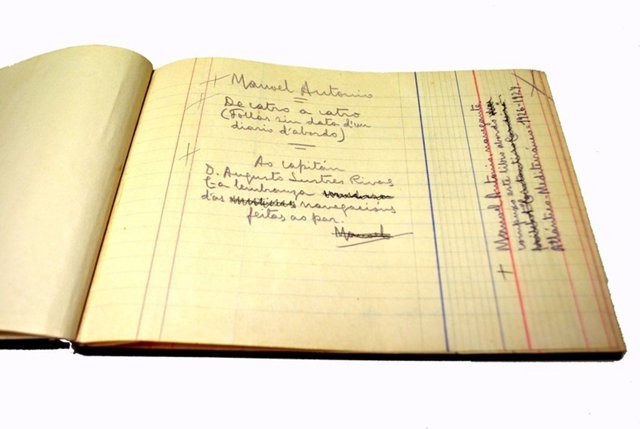 Manoel Antonio
De catro a catro
(Follas sin data d'un
diario d'abordo)
Ao capitán
D. Augusto Lustres Rivas
Ea lembranza
das navegacions
feitas ao par.
Manoel
Manoel Antonio navegante
este libro
Atlántico-Mediterráneo-1926-1927